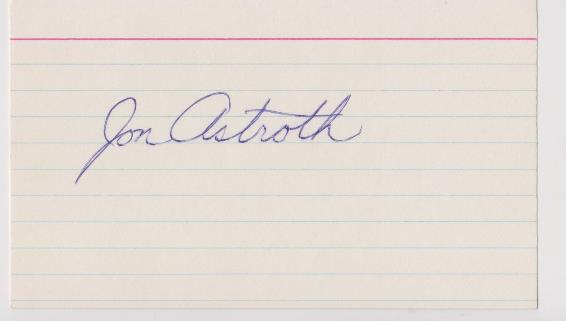 Jon Astroth